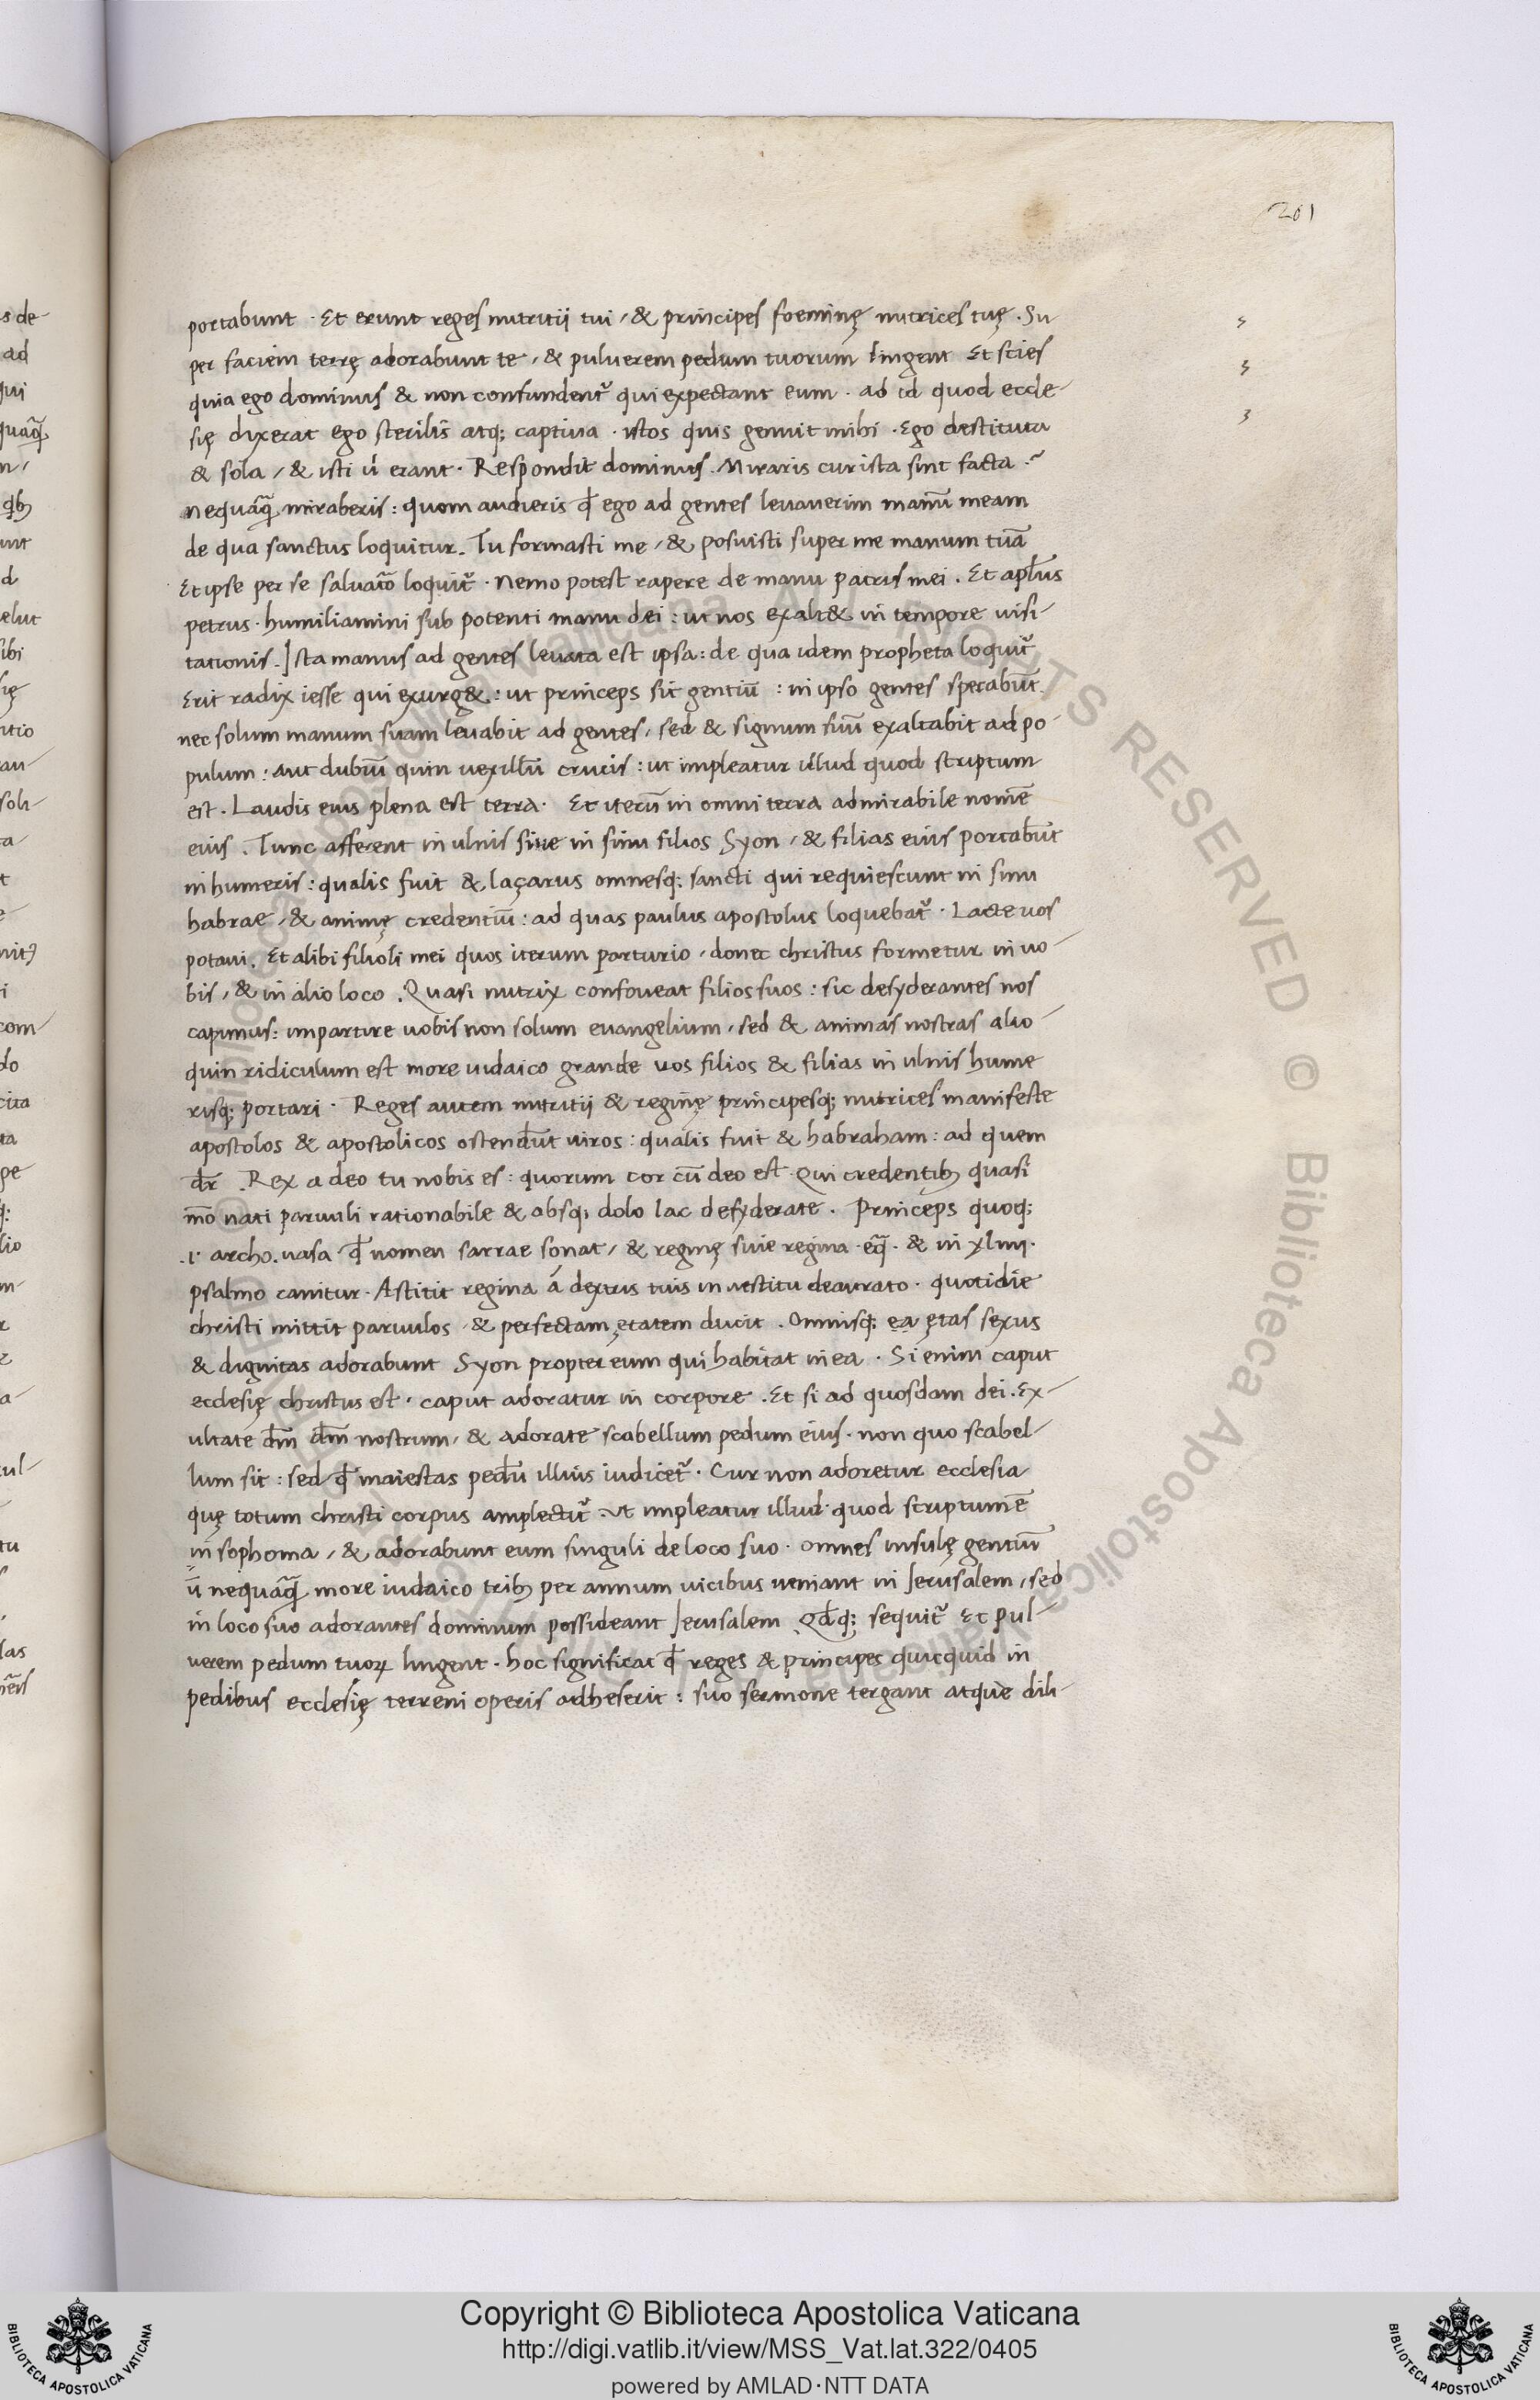 201
portabunt · Et erunt reges nutritii tui / & principes foeminę nutrices tuę . Su
per faciem terrę adorabunt te / & puluerem pedum tuorum lingent Et scies
quia ego dominus & non confundent᷑ qui expectant eum · ad id quod eccle-
się dixerat ego sterilis atq; captiua · istos quis genuit mihi · Ego destituta
& sola / & isti ú erant · Respondit dominus . Miraris cur ista sint facta
nequaq̃ miraberis : quom audieris ꝙ ego ad gentes leuauerim manū meam
de qua sanctus loquitur . Tu formasti me / & posuisti super me manum tuā
Et ipse per se saluato loquit᷑ · Nemo potest rapere de manu patris mei . Et apl̄us
petrus · humiliamini sub potenti manu dei : ut nos exalt& in tempore uisi-
tationis . Ista manus ad gentes leuata est ipsa : de qua idem propheta loquit᷑
Erit radix iesse qui exurg& : ut princeps sit gentiū : in ipso gentes sperabūt
nec solum manum suam leuabit ad gentes / sed & signum suū exaltabit ad po-
pulum : aut dubiū quin uexillū crucis : ut impleatur illud quod scriptum
est . Laudis eius plena est terra · Et iterū in omni terra admirabile nomē
eius . Tunc afferent in ulnis siue in sinu filios Syon / & filias eius portabūt
in humeris : qualis fuit & laçarus omnesq; sancti qui requiescunt in sinu
habrae / & animę credentiū : ad quas paulus apostolus loquebat᷑ · Lacte uos
potaui . Et alibi filioli mei quos iterum parturio / donec christus formetur in uo-
bis / & in alio loco . Quasi nutrix confoueat filios suos : sic desyderantes nos
capimus : impartire uobis non solum euangelium / sed & animas nostras alio-
quin ridiculum est more iudaico grande uos filios & filias in ulnis hume
risq; portari · Reges autem nutritii & reginę principesq; nutrices manifeste
apostolos & apostolicos ostendūt uiros : qualis fuit & habraham : ad quem
dr̄ . Rex a deo tu nobis es : quorum cor cū deo est · Qui credentibꝫ quasi
mō nati paruuli rationabile & absq; dolo lac desyderate . Princeps quoq;
.i· archo . uasa ꝙ nomen sarrae sonat / & reginę siue regina eq̃ · & in xliiij·
psalmo canitur · Astitit regina á dextris tuis in uestitu deaurato · quotidie
christi mittit paruulos / & perfectam ętatem ducit . Omnisq; ea ętas sexus
& dignitas adorabunt Syon propter eum qui habitat in ea · Si enim caput
ecclesię christus est · caput adoratur in corpore . Et si ad quosdam dei . Ex-
ultate dn̄m dn̄m nostrum / & adorate scabellum pedum eius · non quo scabel-
lum sit : sed ꝙ maiestas pedū illius iudicet᷑ · Cur non adoretur ecclesia
quę totum christi corpus amplectit᷑ . ut impleatur illud quod scriptum ē
in sophoma / & adorabunt eum singuli de loco suo · Omnes insulę gentiū
ū nequaq̃ more iudaico tribꝫ per annum uicibus ueniant in Jerusalem / sed
in loco suo adorantes dominum possideant Jerusalem Qd̄q; sequit᷑ Et pul-
uerem pedum tuoꝝ lingent · hoc significat ꝙ reges & principes quicquid in
pedibus ecclesię terreni operis adheserit : suo sermone tergant atque dili-
Copyright © Biblioteca Apostolica Vaticana
http://digi.vatlib.it/view/MSS_Vat.lat.322/0405
powered by AMLAD·NTT DATA